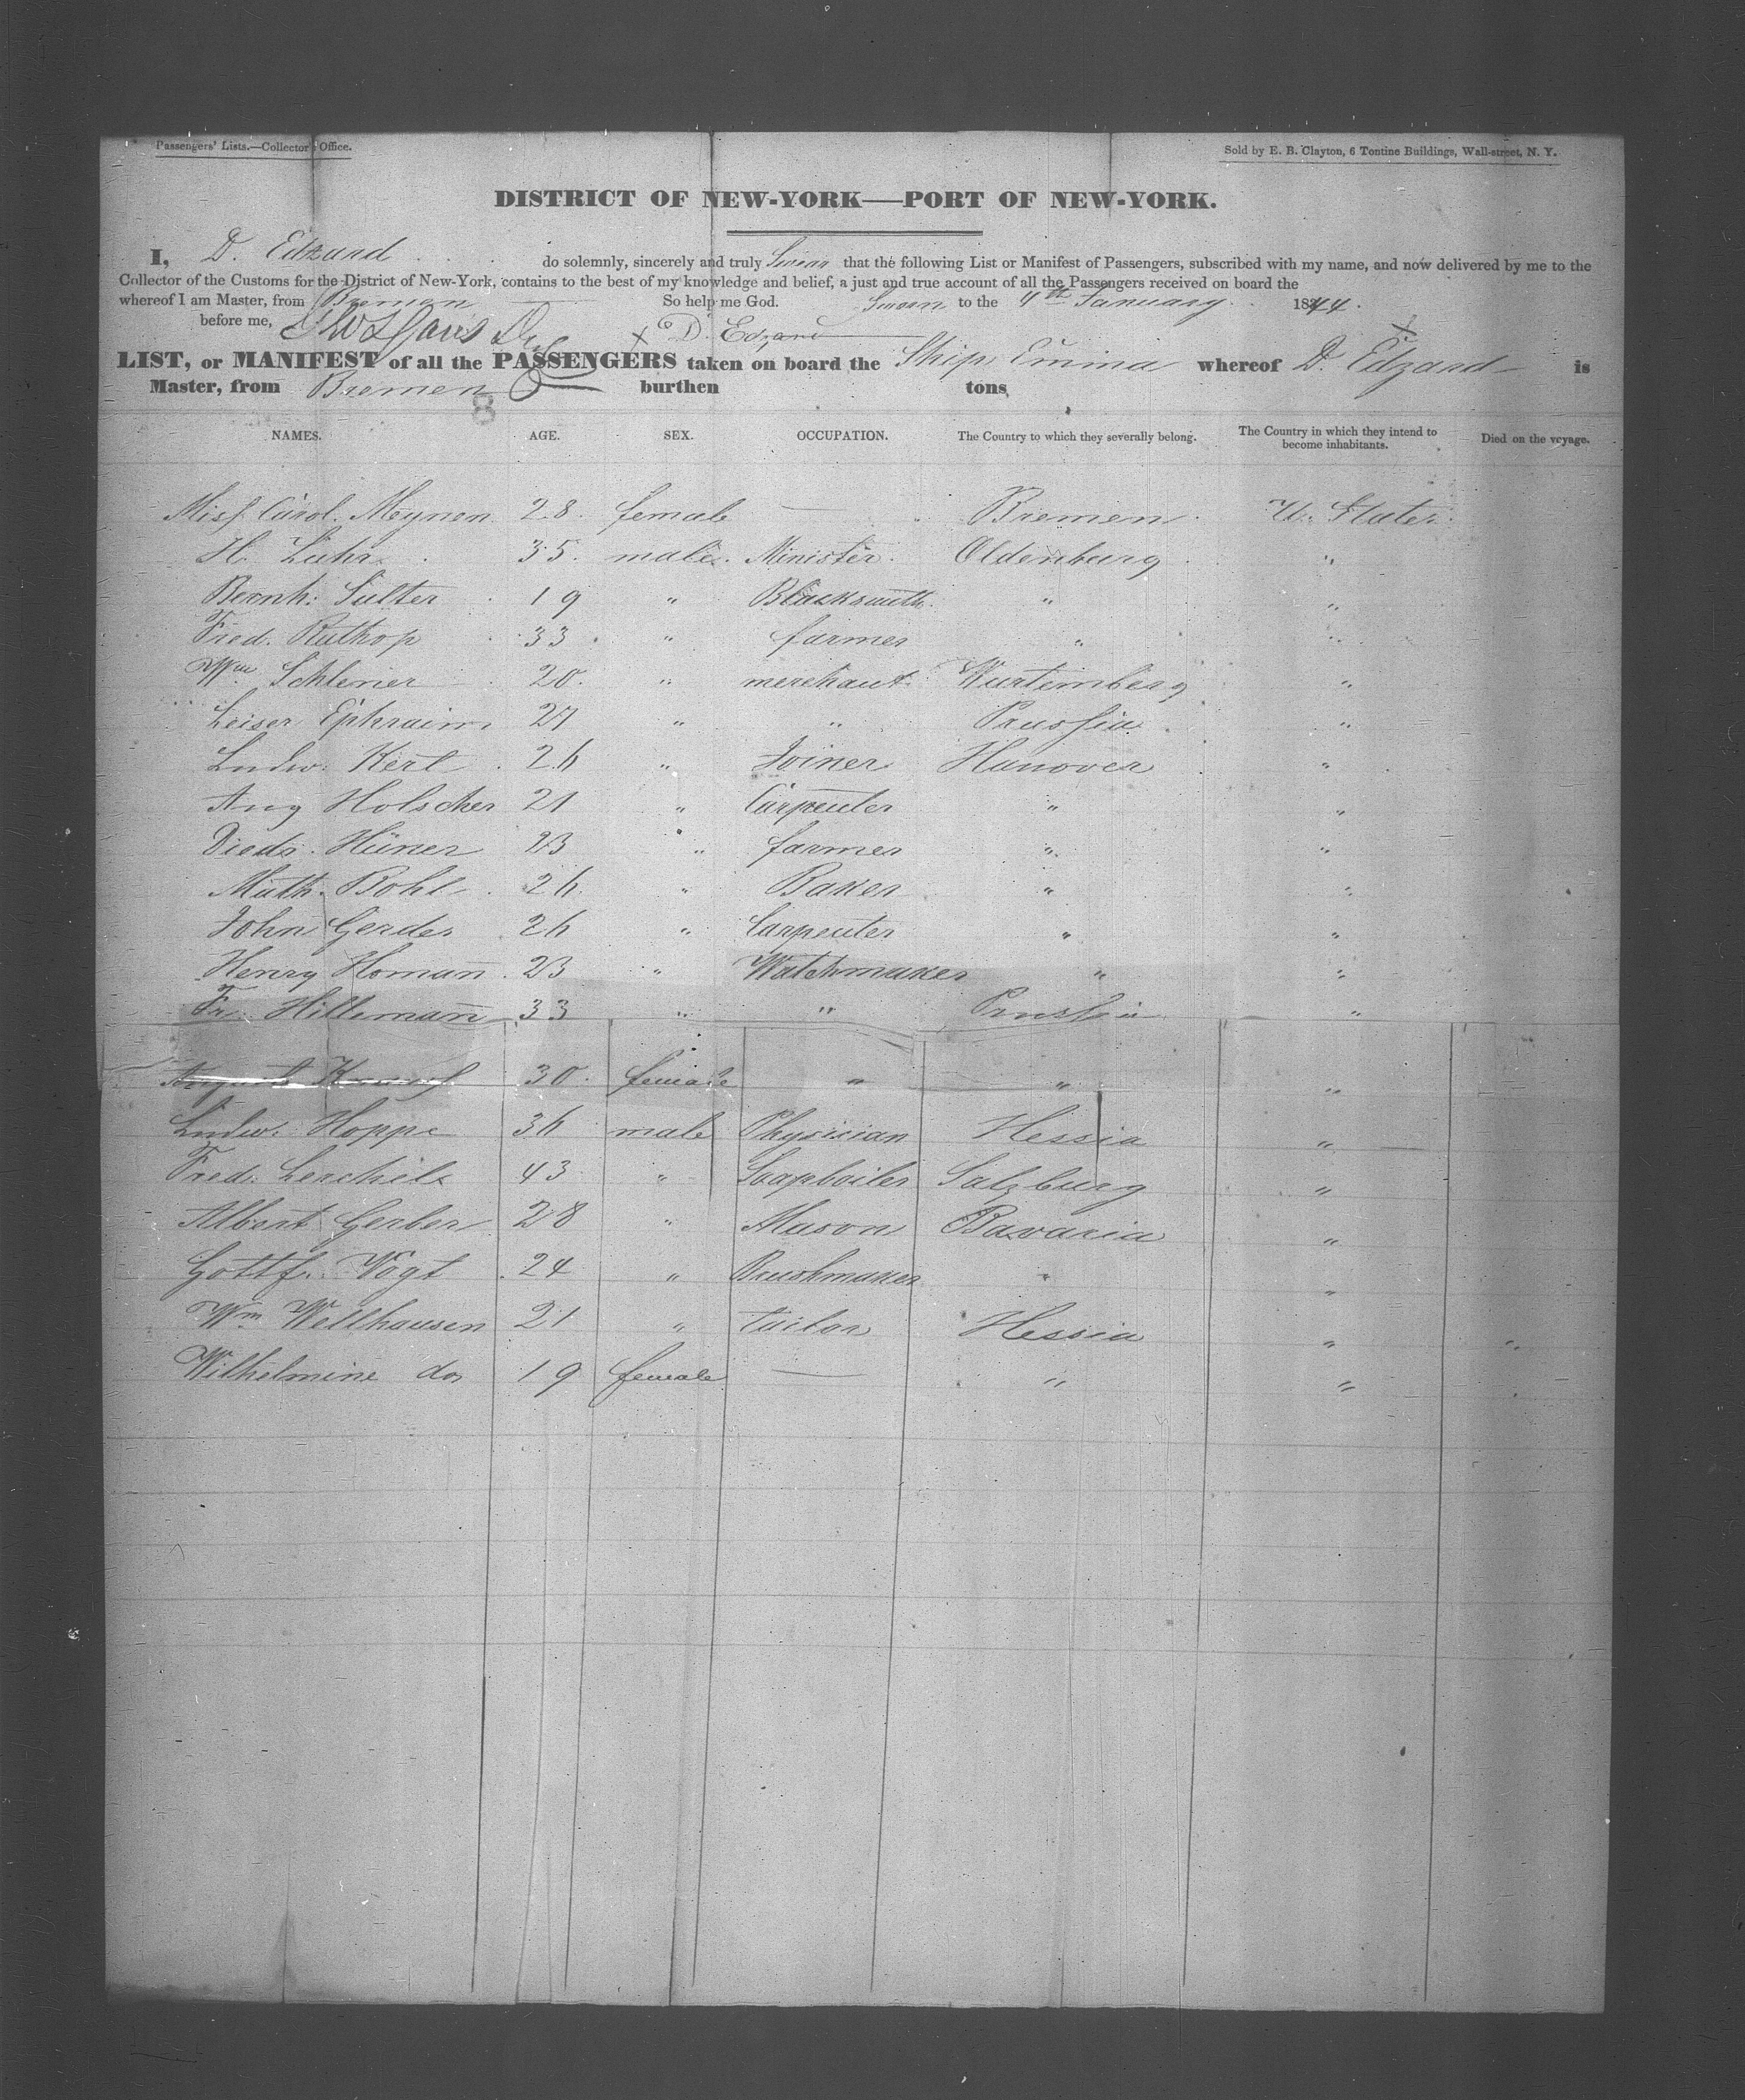 Passengers' Lists.—Collector's Office.
Sold by E. B. Clayton, 6 Tontine Buildings, Wall-street, N. Y.
DISTRICT OF NEW-YORK—PORT OF NEW-YORK.
I, D. Edzard do solemnly, sincerely and truly Swear that the following List or Manifest of Passengers, subscribed with my name, and now delivered by me to the
Collector of the Customs for the District of New-York, contains to the best of my knowledge and belief, a just and true account of all the Passengers received on board the
whereof I am Master, from Bremen So help me God. Sworn to the 4th January 1844.
before me, D. Edzard
LIST, or MANIFEST of all the PASSENGERS taken on board the Ship Emma whereof D. Edzard is
Master, from Bremen burthen tons
8
NAMES. AGE. SEX. OCCUPATION. The Country to which they severally belong. The Country in which they intend to become inhabitants. Died on the voyage.
Miss Carol. Meynen 28 female — Bremen U. States
H. Luhr 35 male Minister Oldenburg "
Bernh: Sulter 19 " Blacksmith " "
Fred. Ruthop 33 " farmer " "
Wm Schlener 20 " merchant Wurtemberg "
Leiser Ephraim 27 " " Prussia "
Ludw: Kerl 26 " Joiner Hanover "
Aug Holscher 21 " Carpenter " "
Diedr. Hüner 23 " farmer " "
Math. Bohl 26 " Baker " "
John Gerdes 26 " Carpenter " "
Henry Homan̄ 23 " Watchmaker " "
Fr. Hilleman̄ 33 " " Prussia "
30 female " " "
Ludw: Hoppe 36 male Physician Hessia "
Fred: 43 " Soapboiler Salzburg "
Albert Gerber 28 " Mason Bavaria "
Gottf. Vogt 24 " Brushmaker " "
Wm Wellhausen 21 " tailor Hessia " "
Wilhelmine do 19 female — " "